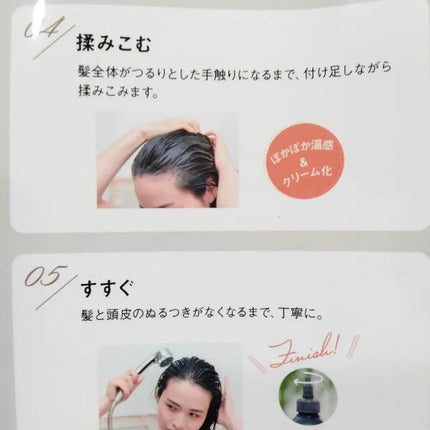 04
揉みこむ
髪全体がつるりとした手触りになるまで、付け足しながら
揉みこみます。
ぽかぽか温感
&
クリーム化
05
すすぐ
髪と頭皮のぬるつきがなくなるまで、丁寧に。
Finish!